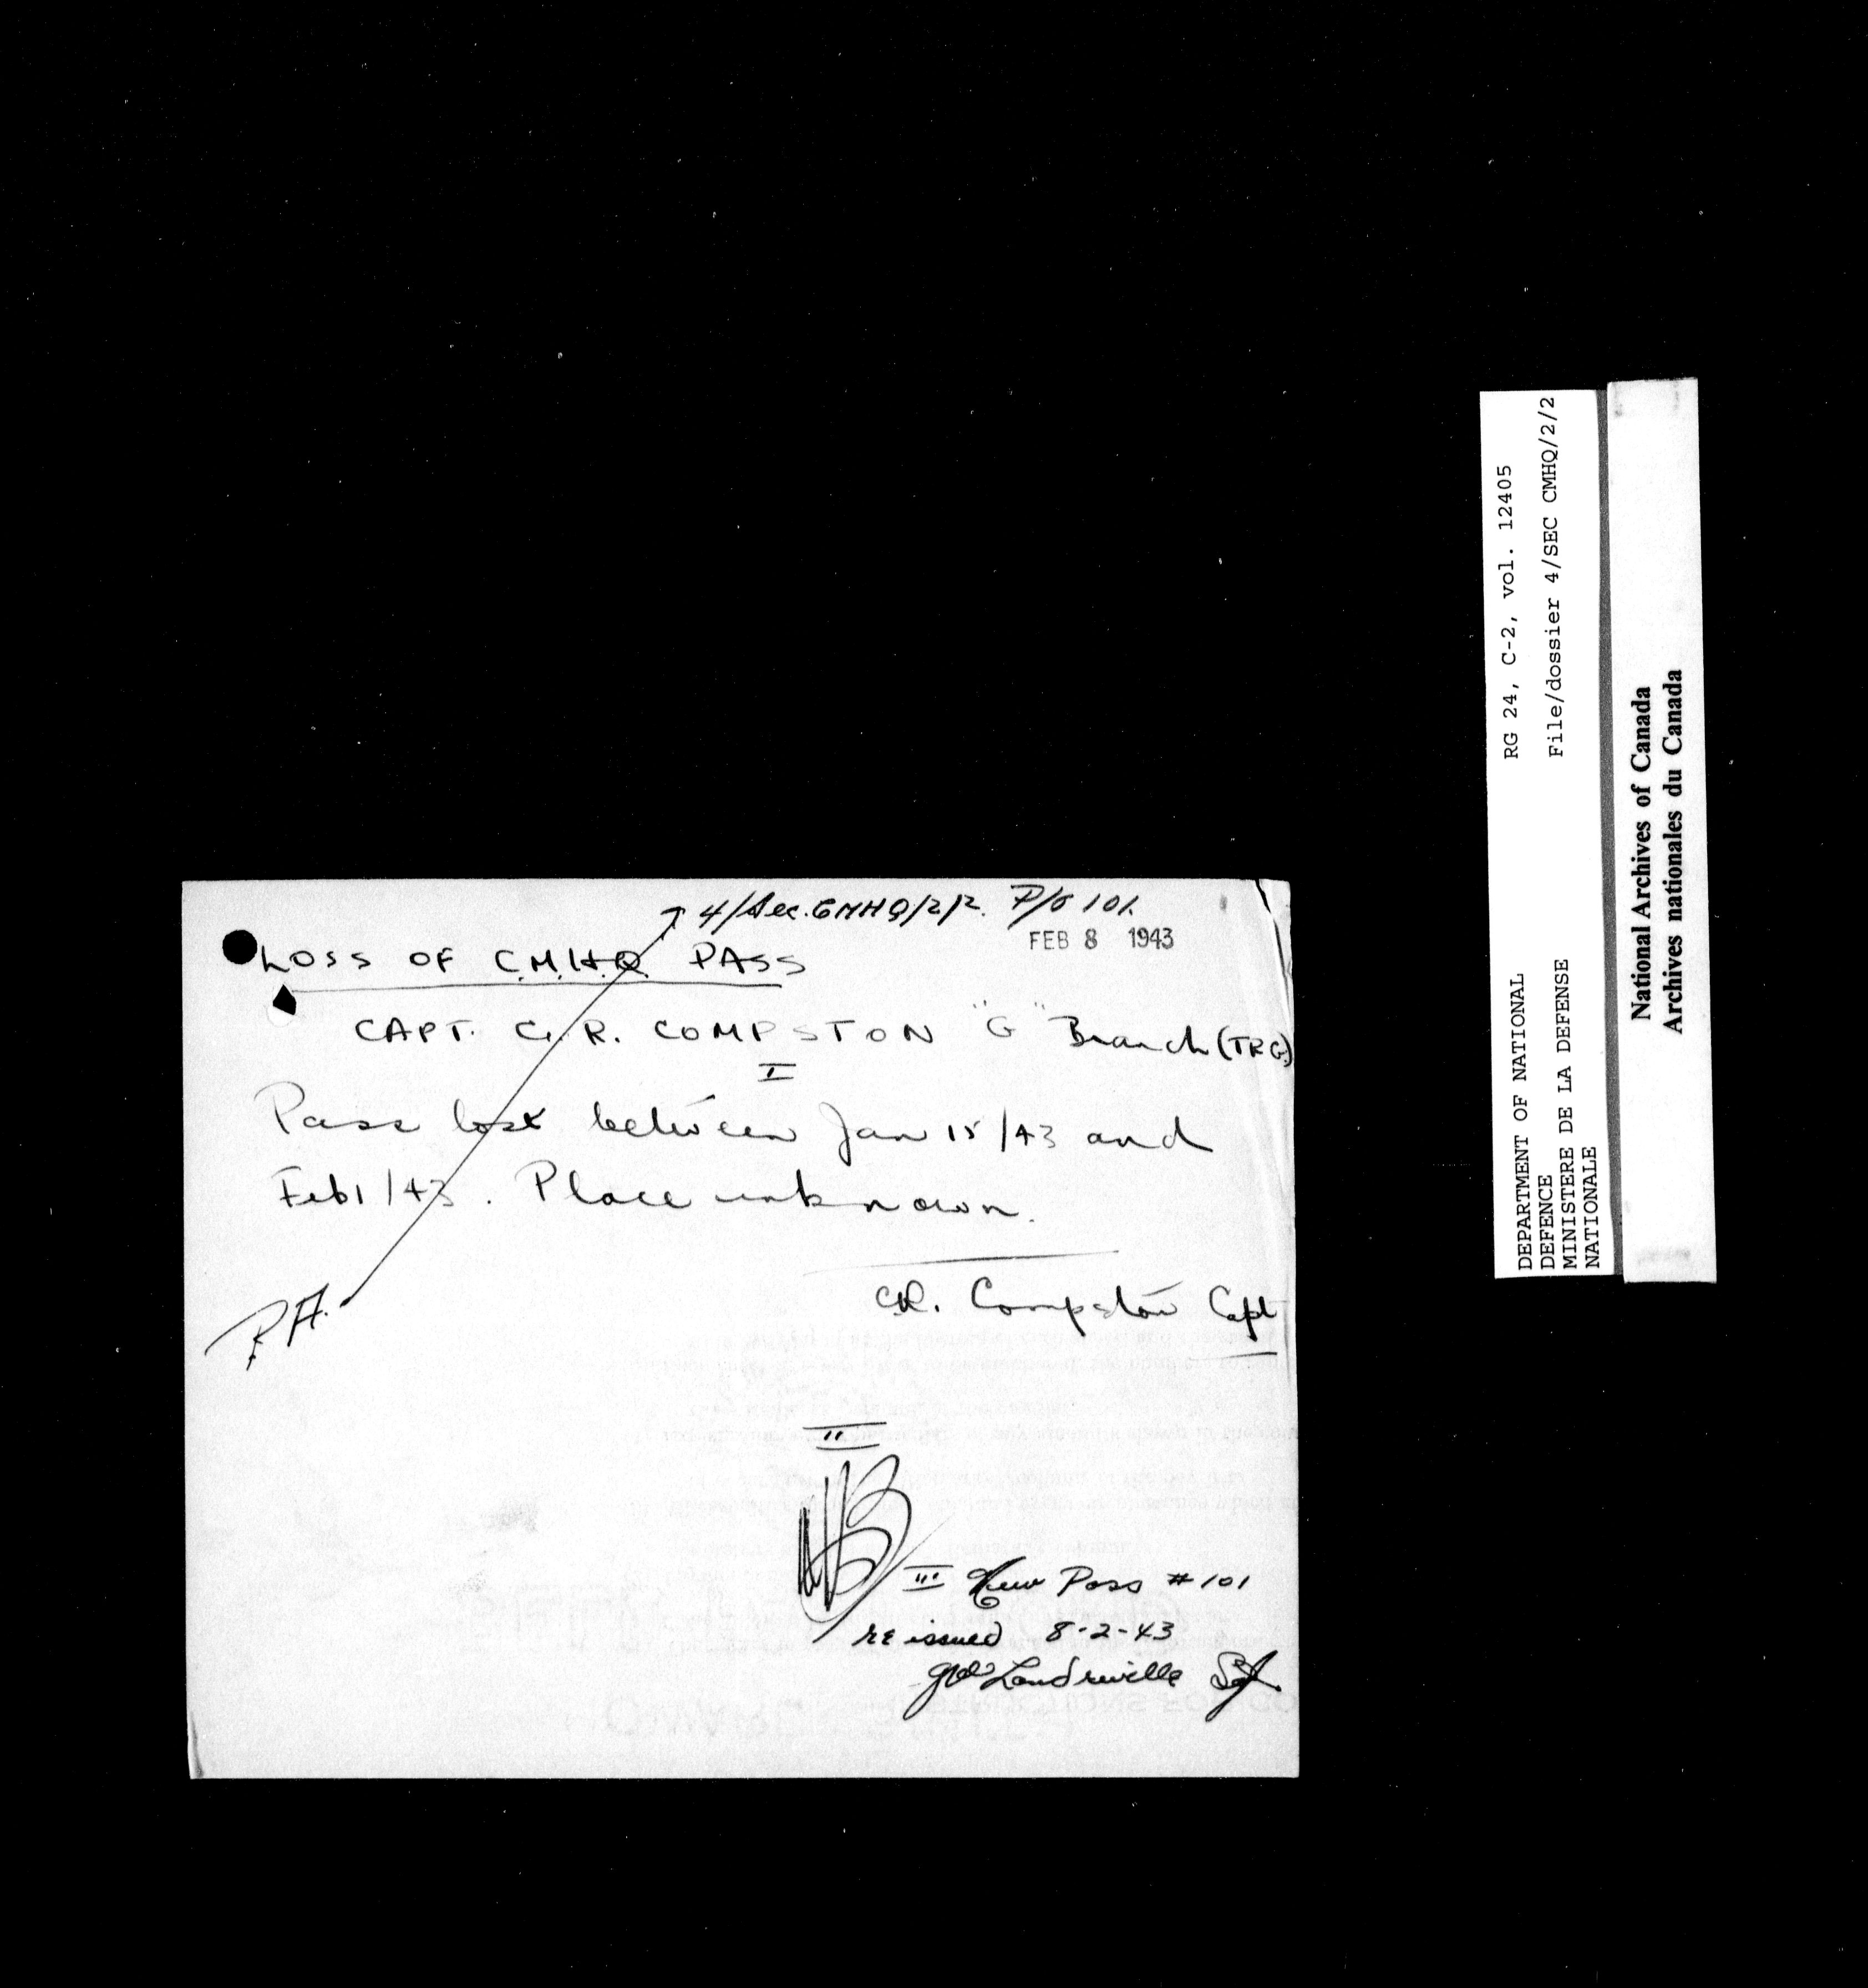 4/Sec.CMHQ/2/2. P/6 101.
FEB 8 1943
LOSS OF C.M.H.Q. PASS
CAPT. C.R. COMPSTON "G" Branch (TRG)
I
Pass lost between Jan 15/43 and
Feb 1/43. Place unknown.
CR. Compston Capt
P.A.
II
III New Pass #101
re issued 8-2-43
Landreville Sgt.
RG 24, C-2, vol. 12405
File/dossier 4/SEC CMHQ/2/2
DEPARTMENT OF NATIONAL
DEFENCE
MINISTERE DE LA DEFENSE
NATIONALE
National Archives of Canada
Archives nationales du Canada